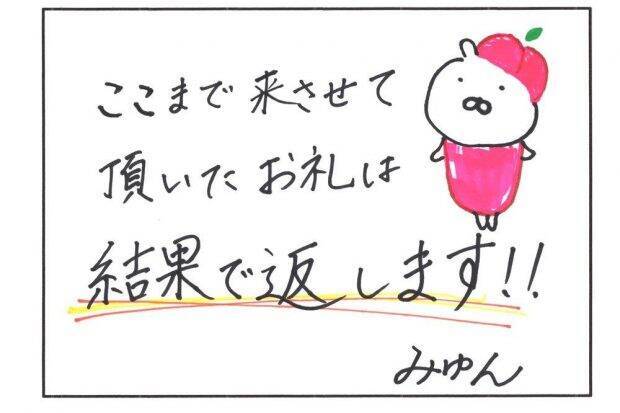 ここまで来させて
頂いたお礼は
結果で返します!!
みゅん